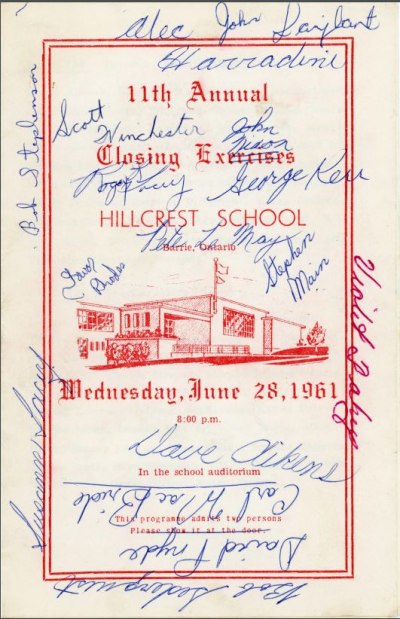 Alec John Sarjeant
Harradine
11th Annual
Bob Stephenson
Scott Winchester
John Nixon
Closing Exercises
Roger
George Kerr
HILLCREST SCHOOL
Pete Le May
Barrie, Ontario
Stephen Main
Trevor Brodes
Wednesday, June 28, 1961
8:00 p.m.
Dave Aikens
In the school auditorium
Carl MacBride
This programme admits two persons
Please show it at the door.
David Pryde
Bob
Suzanne Stacey